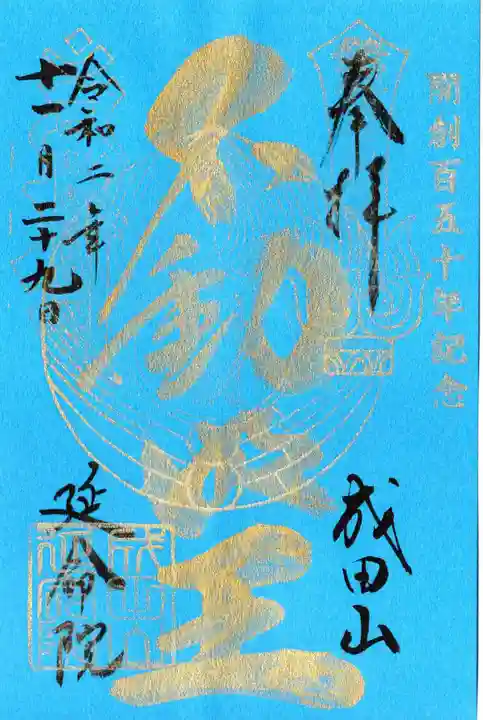 開創百五十年記念
奉拝
成田山
不動明王
令和二年
十一月二十九日
延命院